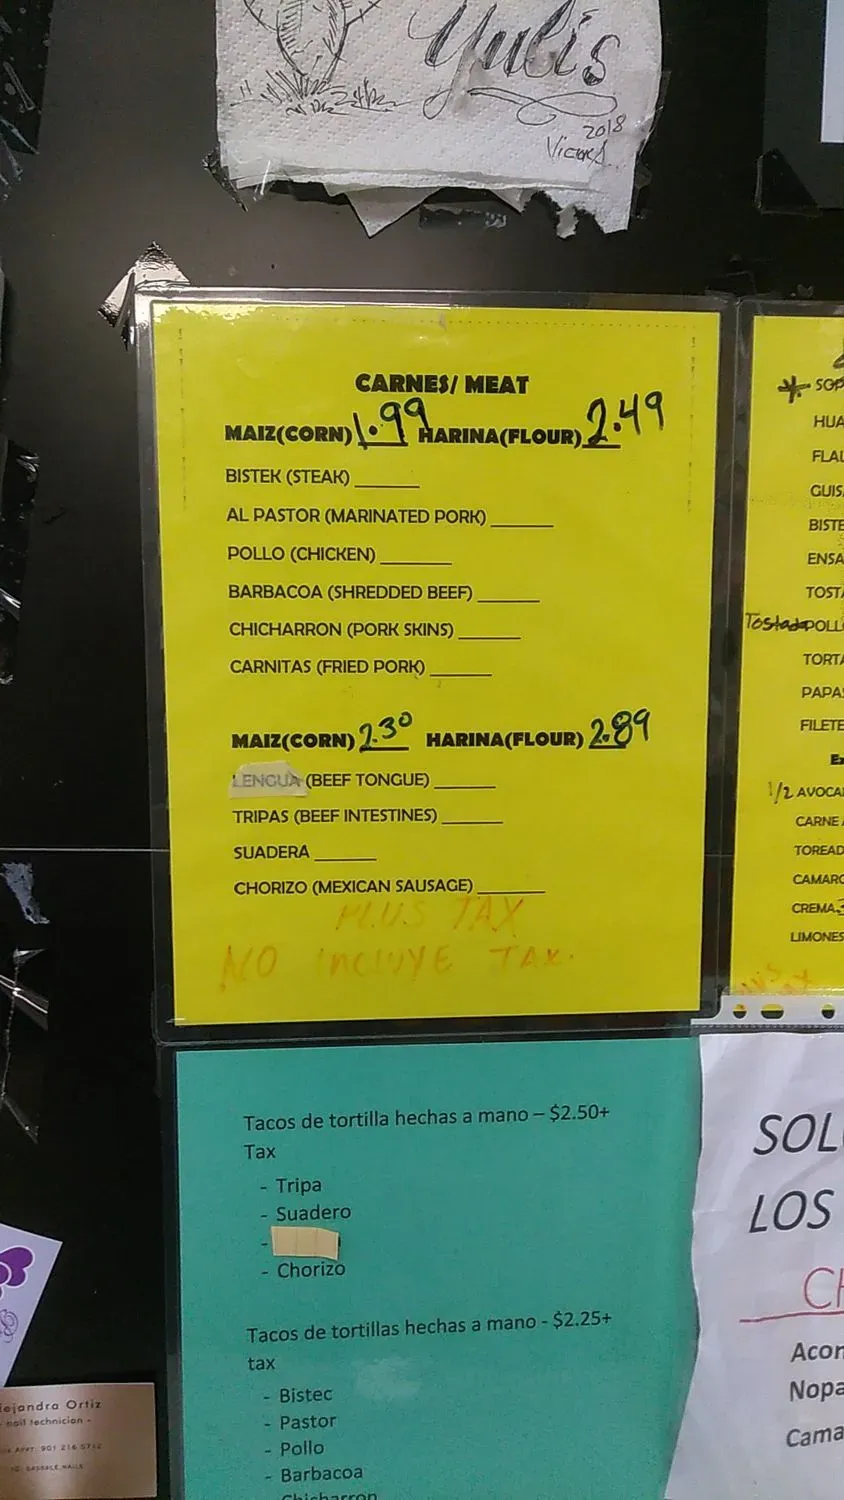 Yulis
2018
CARNES/ MEAT
MAIZ(CORN) 1.99 HARINA(FLOUR) 2.49
BISTEK (STEAK) ______
AL PASTOR (MARINATED PORK) ______
POLLO (CHICKEN) ______
BARBACOA (SHREDDED BEEF) ______
CHICHARRON (PORK SKINS) ______
CARNITAS (FRIED PORK) ______
MAIZ(CORN) 2.30 HARINA(FLOUR) 2.89
LENGUA (BEEF TONGUE) ______
TRIPAS (BEEF INTESTINES) ______
SUADERA ______
CHORIZO (MEXICAN SAUSAGE) ______
PLUS TAX
NO INCLUYE TAX.
* SOP
HUA
FLAU
GUIS
BISTE
ENSA
TOSTA
Tostada POLL
TORTA
PAPAS
FILETE
Ex
1/2 AVOCA
CARNE A
TOREAD
CAMARO
CREMA
LIMONES
Tacos de tortilla hechas a mano – $2.50+
Tax
- Tripa
- Suadero
-
- Chorizo
Tacos de tortillas hechas a mano - $2.25+
tax
- Bistec
- Pastor
- Pollo
- Barbacoa
- Chicharron
SOL
LOS
CH
Acom
Nopa
Cama
lejandra Ortiz
nail technician -